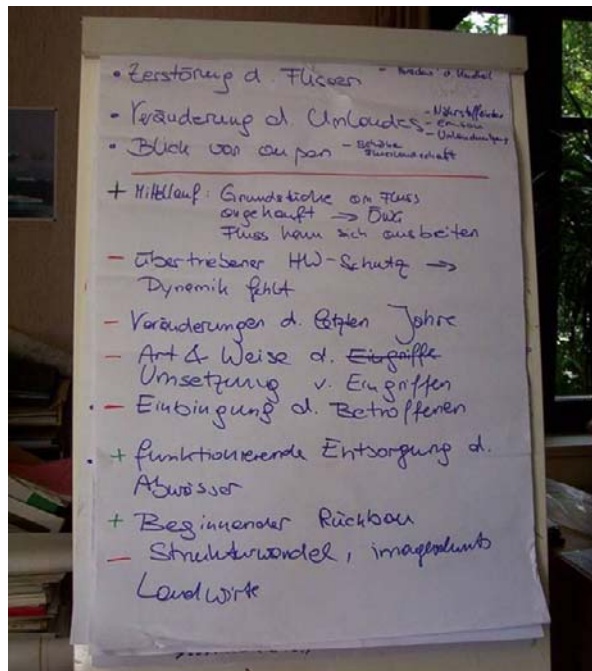 • Zerstörung d. Flüssen -
• Veränderung d. Umlandes - Nährstoffeinträge
- Verlandungen
• Blick von aussen - schöne
Flusslandschaft
+ Mittellauf: Grundstücke am Fluss
angekauft → ÖWG
Fluss kann sich ausbreiten
- übertriebener HW-Schutz →
Dynamik fehlt
- Veränderungen d. letzten Jahre
- Art & Weise d. Eingriffe
Umsetzung v. Eingriffen
- Einbingung d. Betroffenen
+ funktionierende Entsorgung d.
Abwässer
+ Beginnender Rückbau
- Strukturwandel,
Landwirte